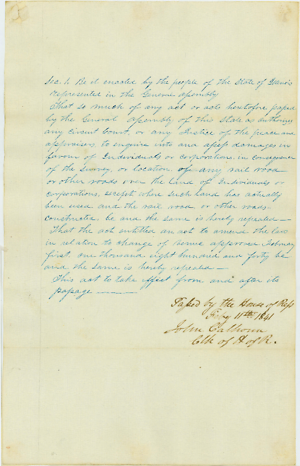 Sec. 1. Be it enacted by the people of the State of Illinois
represented in the General Assembly
That so much of any act or acts heretofore passed
by the General Assembly of this State as authorizes
any Circuit Court, or any Justice of the peace and
appraisers, to enquire into and assess damages in
favour of Individuals or Corporations, in consequence
of the Survey, or location of any rail road
or other roads over the land of Individuals or
corporations, except when such land has actually
been used and the rail road or other roads
constructed, be and the same is hereby repealed—
That the act entitled an act to amend the law
in relation to change of venue approved February
first one thousand eight hundred and forty be
and the same is hereby repealed—
This act to take effect from and after its
passage
Passed by the House of Reps
Feby 11th 1841
John Calhoun
Clk of H. of R.